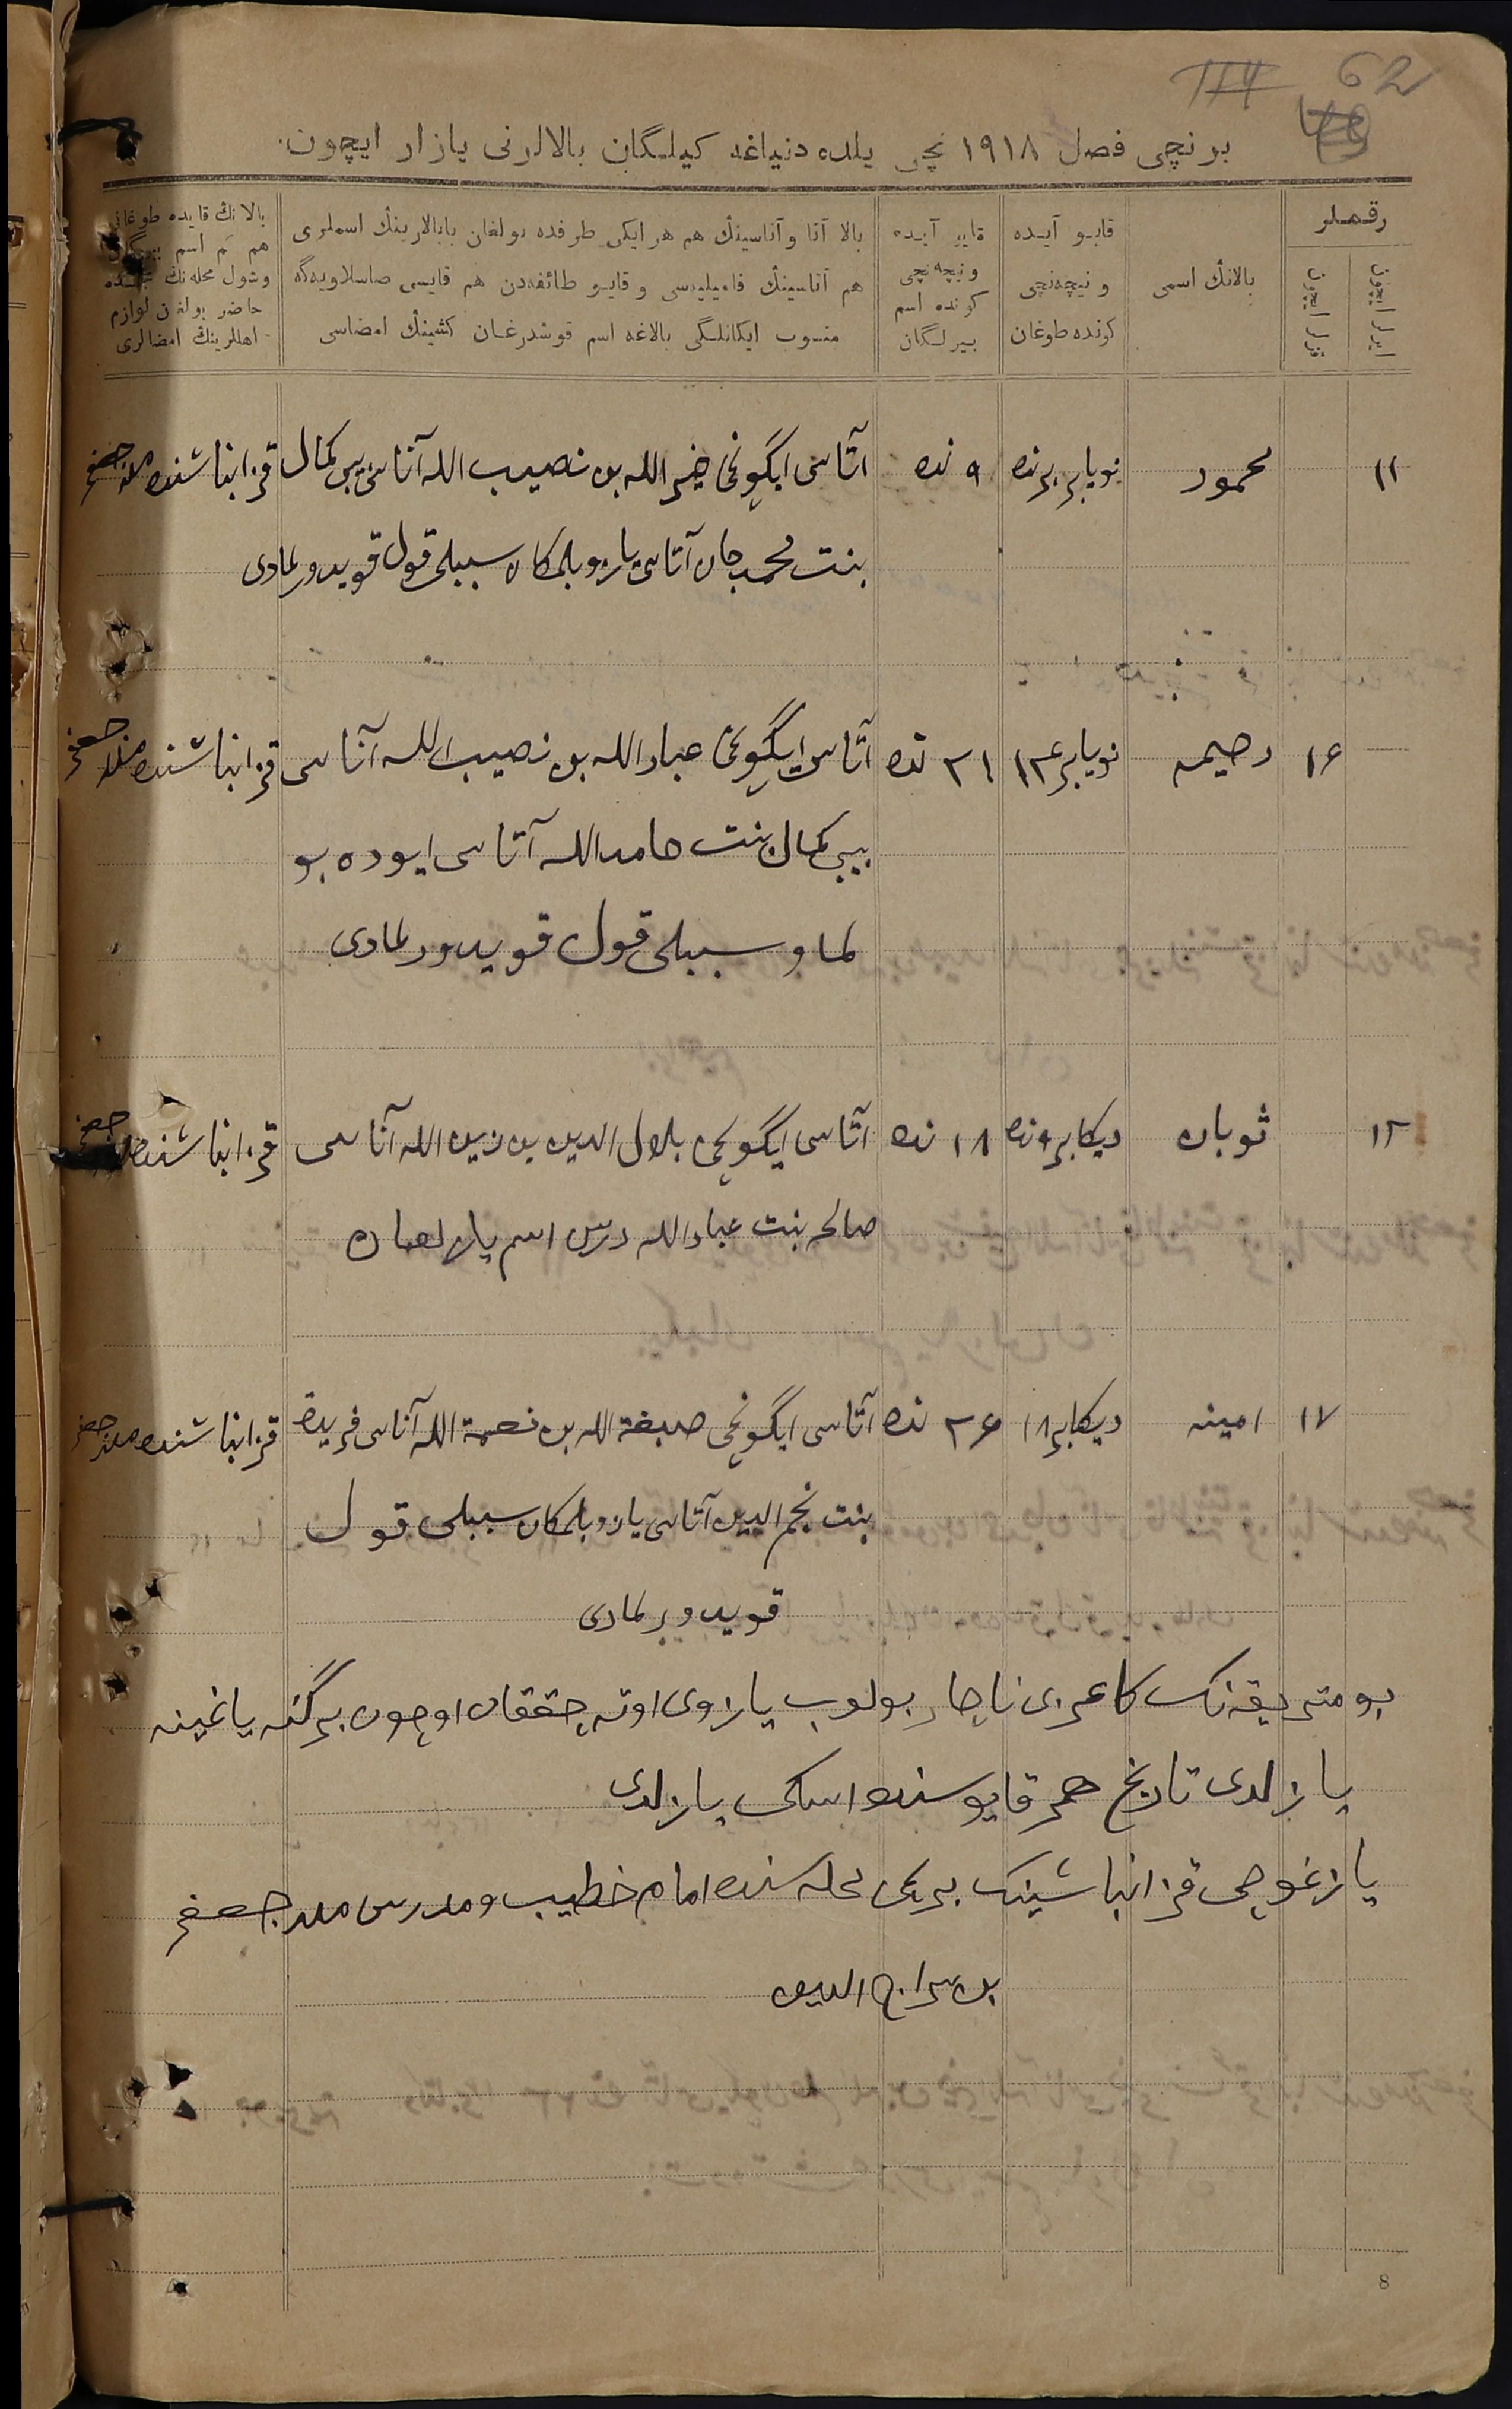 62
برنچی فصل ۱۹۱۸ نچی یلده دنیاغه کیلگان بالالرنی یازار ایچون.
رقملر
ایرلر ایچون
قزلر ایچون
بالانڭ اسمی
قایو آیده
و نیچه‌نچی
کونده طوغان
قایو آیده
و نیچه‌نچی
کونده اسم
بیرلگان
بالا آتا و آناسینڭ هم هر ایکی طرفده بولغان بابالارینڭ اسملری
هم آتاسینڭ فامیلیه‌سی و قایو طائفه‌دن هم قایسی صاسلاویه‌گه
منسوب ایکانلگی بالاغه اسم قوشدرغان کشینڭ امضاسی
بالانڭ قایده طوغانی
هم اسم
وشول محله‌نڭ
حاضر بولغن لوازم
اهللرینڭ امضالری
۱۱ محمود نویابر برنده ۹ نده آتاسی ایگونچی خیر الله بن نصیب الله آناسی بیبی کمال
بنت محمد جان آتاسی یازو بلمکان سببلی قول قویدورلمادی
۱۶ رحیمه نویابر ۱۳ ۲۱ نده آتاسی ایگونچی عباد الله بن نصیب الله آناسی
بیبی کمال بنت حامد الله آتاسی ایوده بو
لماو سببلی قول قویدورلمادی
۱۲ ثوبان دیکابر ۹ نده ۱۸ نده آتاسی ایگونچی بلال الدین بن زین الله آناسی
صالحه بنت عباد الله درس اسم یازلعان
۱۷ امینه دیکابر ۱۸ ۲۶ نده آتاسی ایگونچی صبغة الله بن نعمة الله آناسی فریده
بنت نجم الدین آتاسی یازو بلمکان سببلی قول
قویدورلمادی
بو متریقه نک کاغزی ناچار بولوب یازوی اوته چققان اوچون بر گنه یاغینه
یازلدی تاریخ هر قایوسنده اسکی یازلدی
یازغوچی قزانباشینک برنچی محله سنده امام خطیب و مدرس ملا جعفر
بن سراج الدین
8